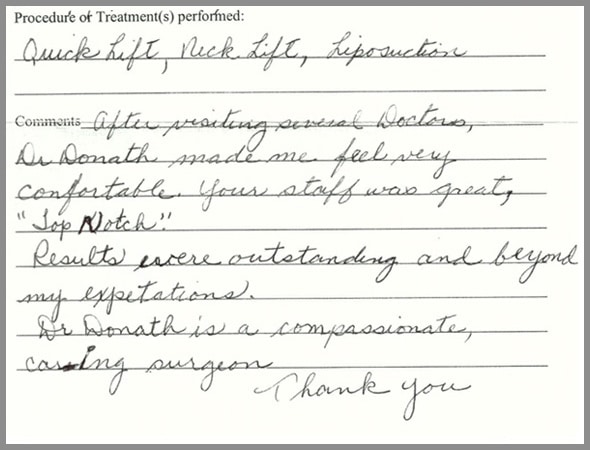 Procedure or Treatment(s) performed:
Quick Lift, Neck Lift, Liposuction
Comments After visiting several Doctors,
Dr Donath made me feel very
confortable. Your staff was great,
"Top Notch".
Results were outstanding and beyond
my expetations.
Dr Donath is a compassionate,
caring surgeon
Thank you